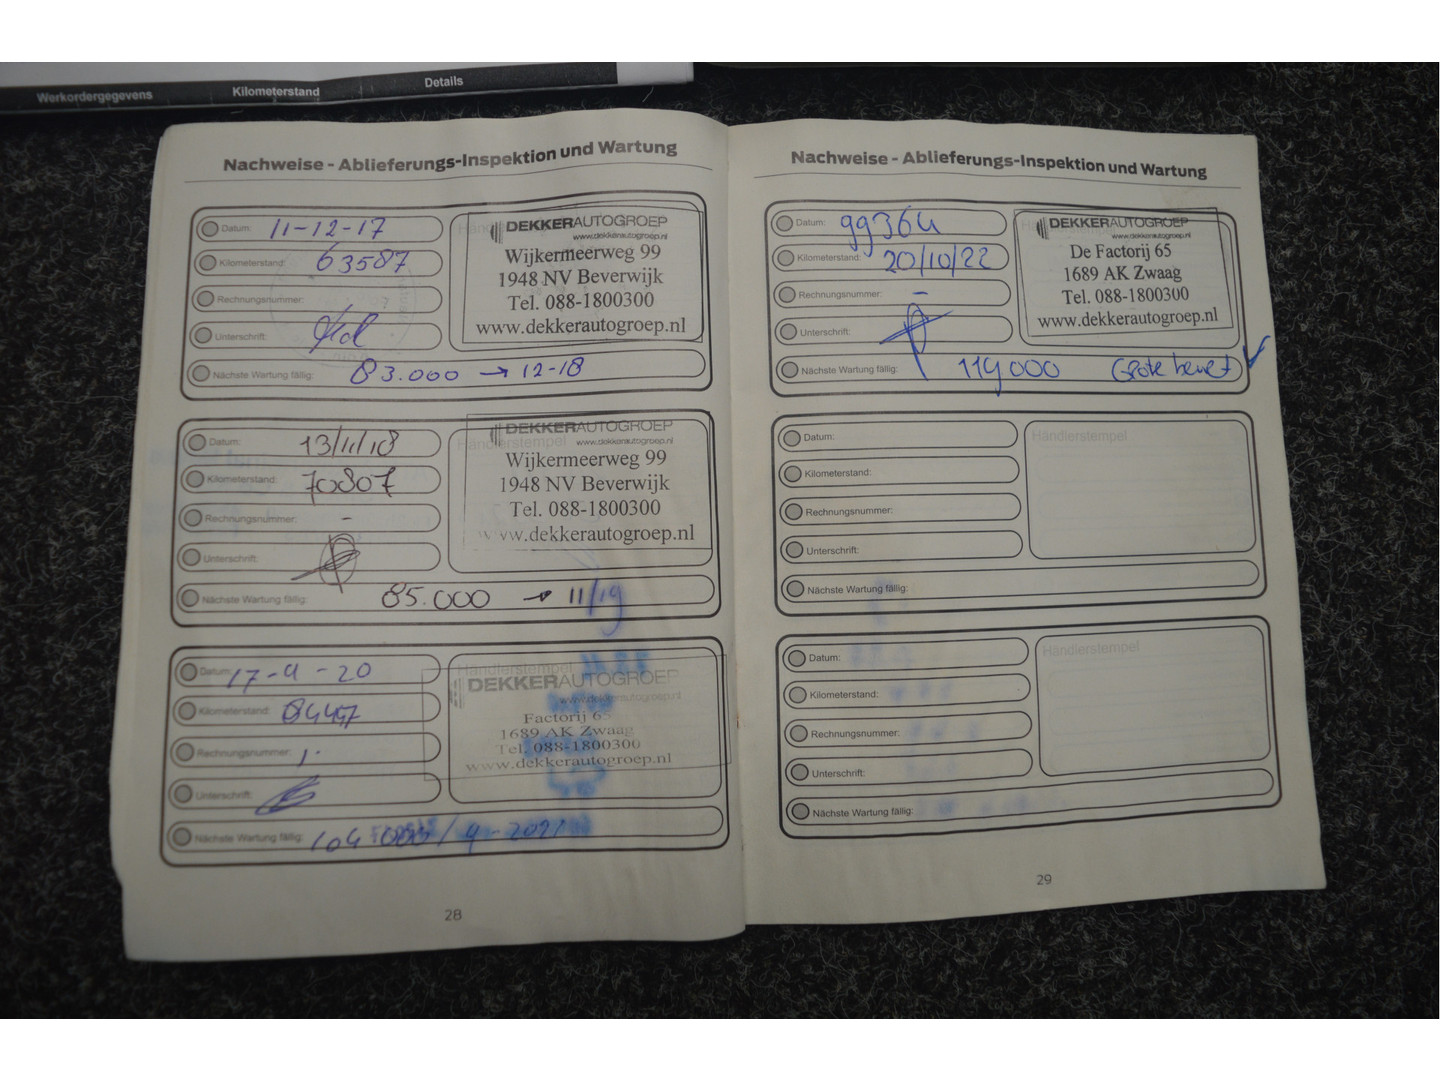 Werkordergegevens
Kilometerstand
Details
Nachweise - Ablieferungs-Inspektion und Wartung
Datum: 11-12-17
Kilometerstand: 63587
Rechnungsnummer:
Unterschrift:
Nächste Wartung fällig: 83.000 → 12-18
DEKKERAUTOGROEP
www.dekkerautogroep.nl
Wijkermeerweg 99
1948 NV Beverwijk
Tel. 088-1800300
www.dekkerautogroep.nl
Datum: 13/11/18
Kilometerstand: 70807
Rechnungsnummer: -
Unterschrift:
Nächste Wartung fällig: 85.000 → 11/19
Händlerstempel
DEKKERAUTOGROEP
www.dekkerautogroep.nl
Wijkermeerweg 99
1948 NV Beverwijk
Tel. 088-1800300
www.dekkerautogroep.nl
Datum: 17-9-20
Kilometerstand:
Rechnungsnummer:
Unterschrift:
Nächste Wartung fällig: 104 000 / 9-2021
Händlerstempel
DEKKERAUTOGROEP
www.dekkerautogroep.nl
Factorij 65
1689 AK Zwaag
Tel. 088-1800300
www.dekkerautogroep.nl
28
Nachweise - Ablieferungs-Inspektion und Wartung
Datum: 99364
Kilometerstand: 20/10/22
Rechnungsnummer: -
Unterschrift:
Nächste Wartung fällig: 119000 Grote beurt
DEKKERAUTOGROEP
www.dekkerautogroep.nl
De Factorij 65
1689 AK Zwaag
Tel. 088-1800300
www.dekkerautogroep.nl
Datum:
Kilometerstand:
Rechnungsnummer:
Unterschrift:
Nächste Wartung fällig:
Händlerstempel
Datum:
Kilometerstand:
Rechnungsnummer:
Unterschrift:
Nächste Wartung fällig:
Händlerstempel
29